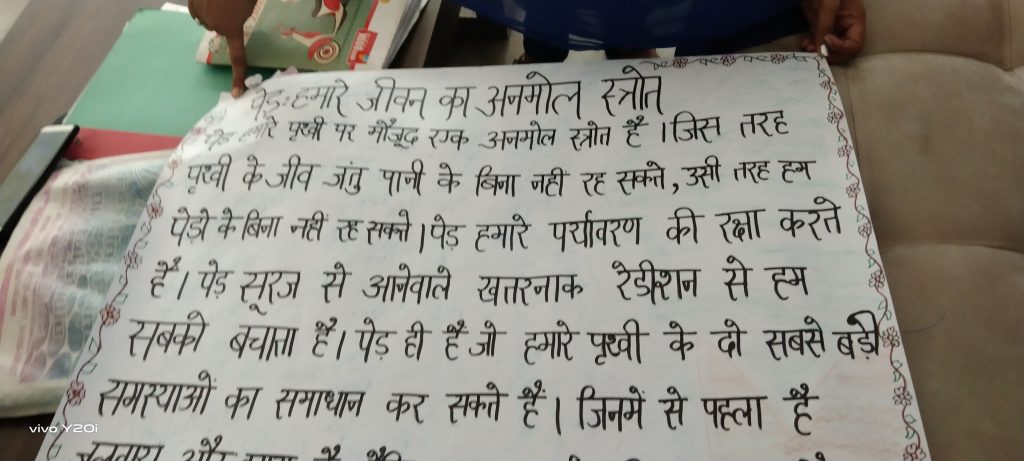 पेड़ः हमारे जीवन का अनमोल स्त्रोत
पेड़ हमारे पृथ्वी पर मौजूद एक अनमोल स्त्रोत है । जिस तरह
पृथ्वी के जीव जंतु पानी के बिना नही रह सकते, उसी तरह हम
पेडो के बिना नहीं रह सकते। पेड़ हमारे पर्यावरण की रक्षा करते
हैं। पेड़ सूरज से आनेवाले खतरनाक रेडीशन से हम
सबको बचाता है। पेड़ ही है जो हमारे पृथ्वी के दो सबसे बड़ी
समस्याओं का समाधान कर सकते हैं। जिनमें से पहला है
vivo Y20i